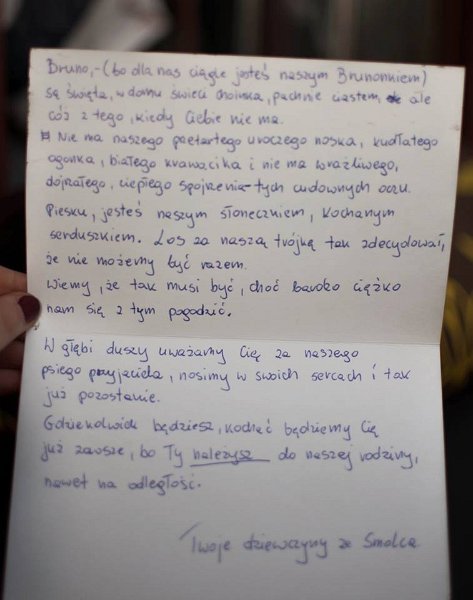 Bruno,-(bo dla nas ciągle jesteś naszym Brunonkiem)
są święta, w domu świeci choinka, pachnie ciastem, ale
cóż z tego, kiedy Ciebie nie ma.
Nie ma naszego przetartego uroczego noska, kudłatego
ogonka, białego krawacika i nie ma wrażliwego,
dojrzałego, ciepłego spojrzenia-tych cudownych oczu.
Piesku, jesteś naszym słoneczkiem, kochanym
serduszkiem. Los za naszą trójkę tak zdecydował,
że nie możemy być razem.
Wiemy, że tak musi być, choć bardzo ciężko
nam się z tym pogodzić.
W głębi duszy uważamy Cię za naszego
psiego przyjaciela, nosimy w swoich sercach i tak
już pozostanie.
Gdziekolwiek będziesz, kochać będziemy Cię
już zawsze, bo Ty należysz do naszej rodziny,
nawet na odległość.
Twoje dziewczyny ze Smolca